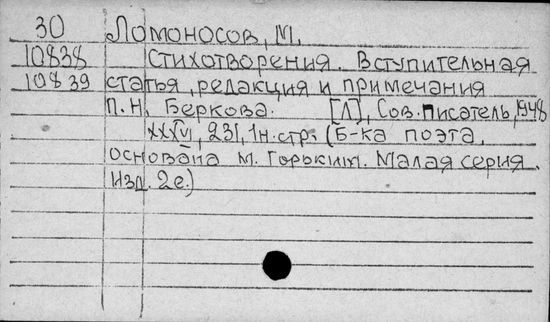 30 Ломоносов, М.
10838 Стихотворения. Вступительная
10839 статья, редакция и примечания
П.Н. Беркова. [Л], Сов. писатель, 1948
XXXVI, 231, 1н.стр. (Б-ка поэта,
основана М. Горьким. Малая серия.
Изд. 2е.)